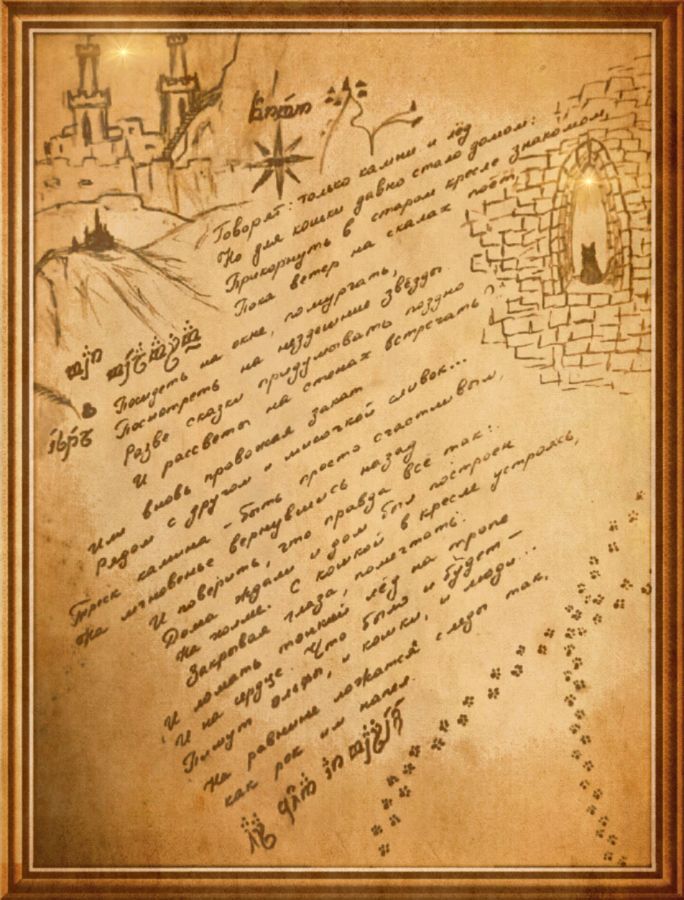 Говорят: только камни и лёд
Но для кошки давно стало домом:
Прикорнуть в старом кресле знакомом,
Пока ветер на скалах поёт,
Посидеть на окне, помурчать,
Посмотреть на нездешние звёзды.
Разве сказки придумывать поздно
И рассветы на стенах встречать?
Или вновь провожая закат
Рядом с другом и мисочкой сливок...
Треск камина - быть просто счастливым,
На мгновенье вернувшись назад
И поверить, что правда всё так:
Дома ждали и дом был построен
На холме. С кошкой в кресле устроясь,
Закрывая глаза, помечтать.
И ломать тонкий лёд на тропе
И на сердце. Что было и будет -
Пишут эльфы, и кошки, и люди...
На равнине ложатся следы так,
как рок им напел.